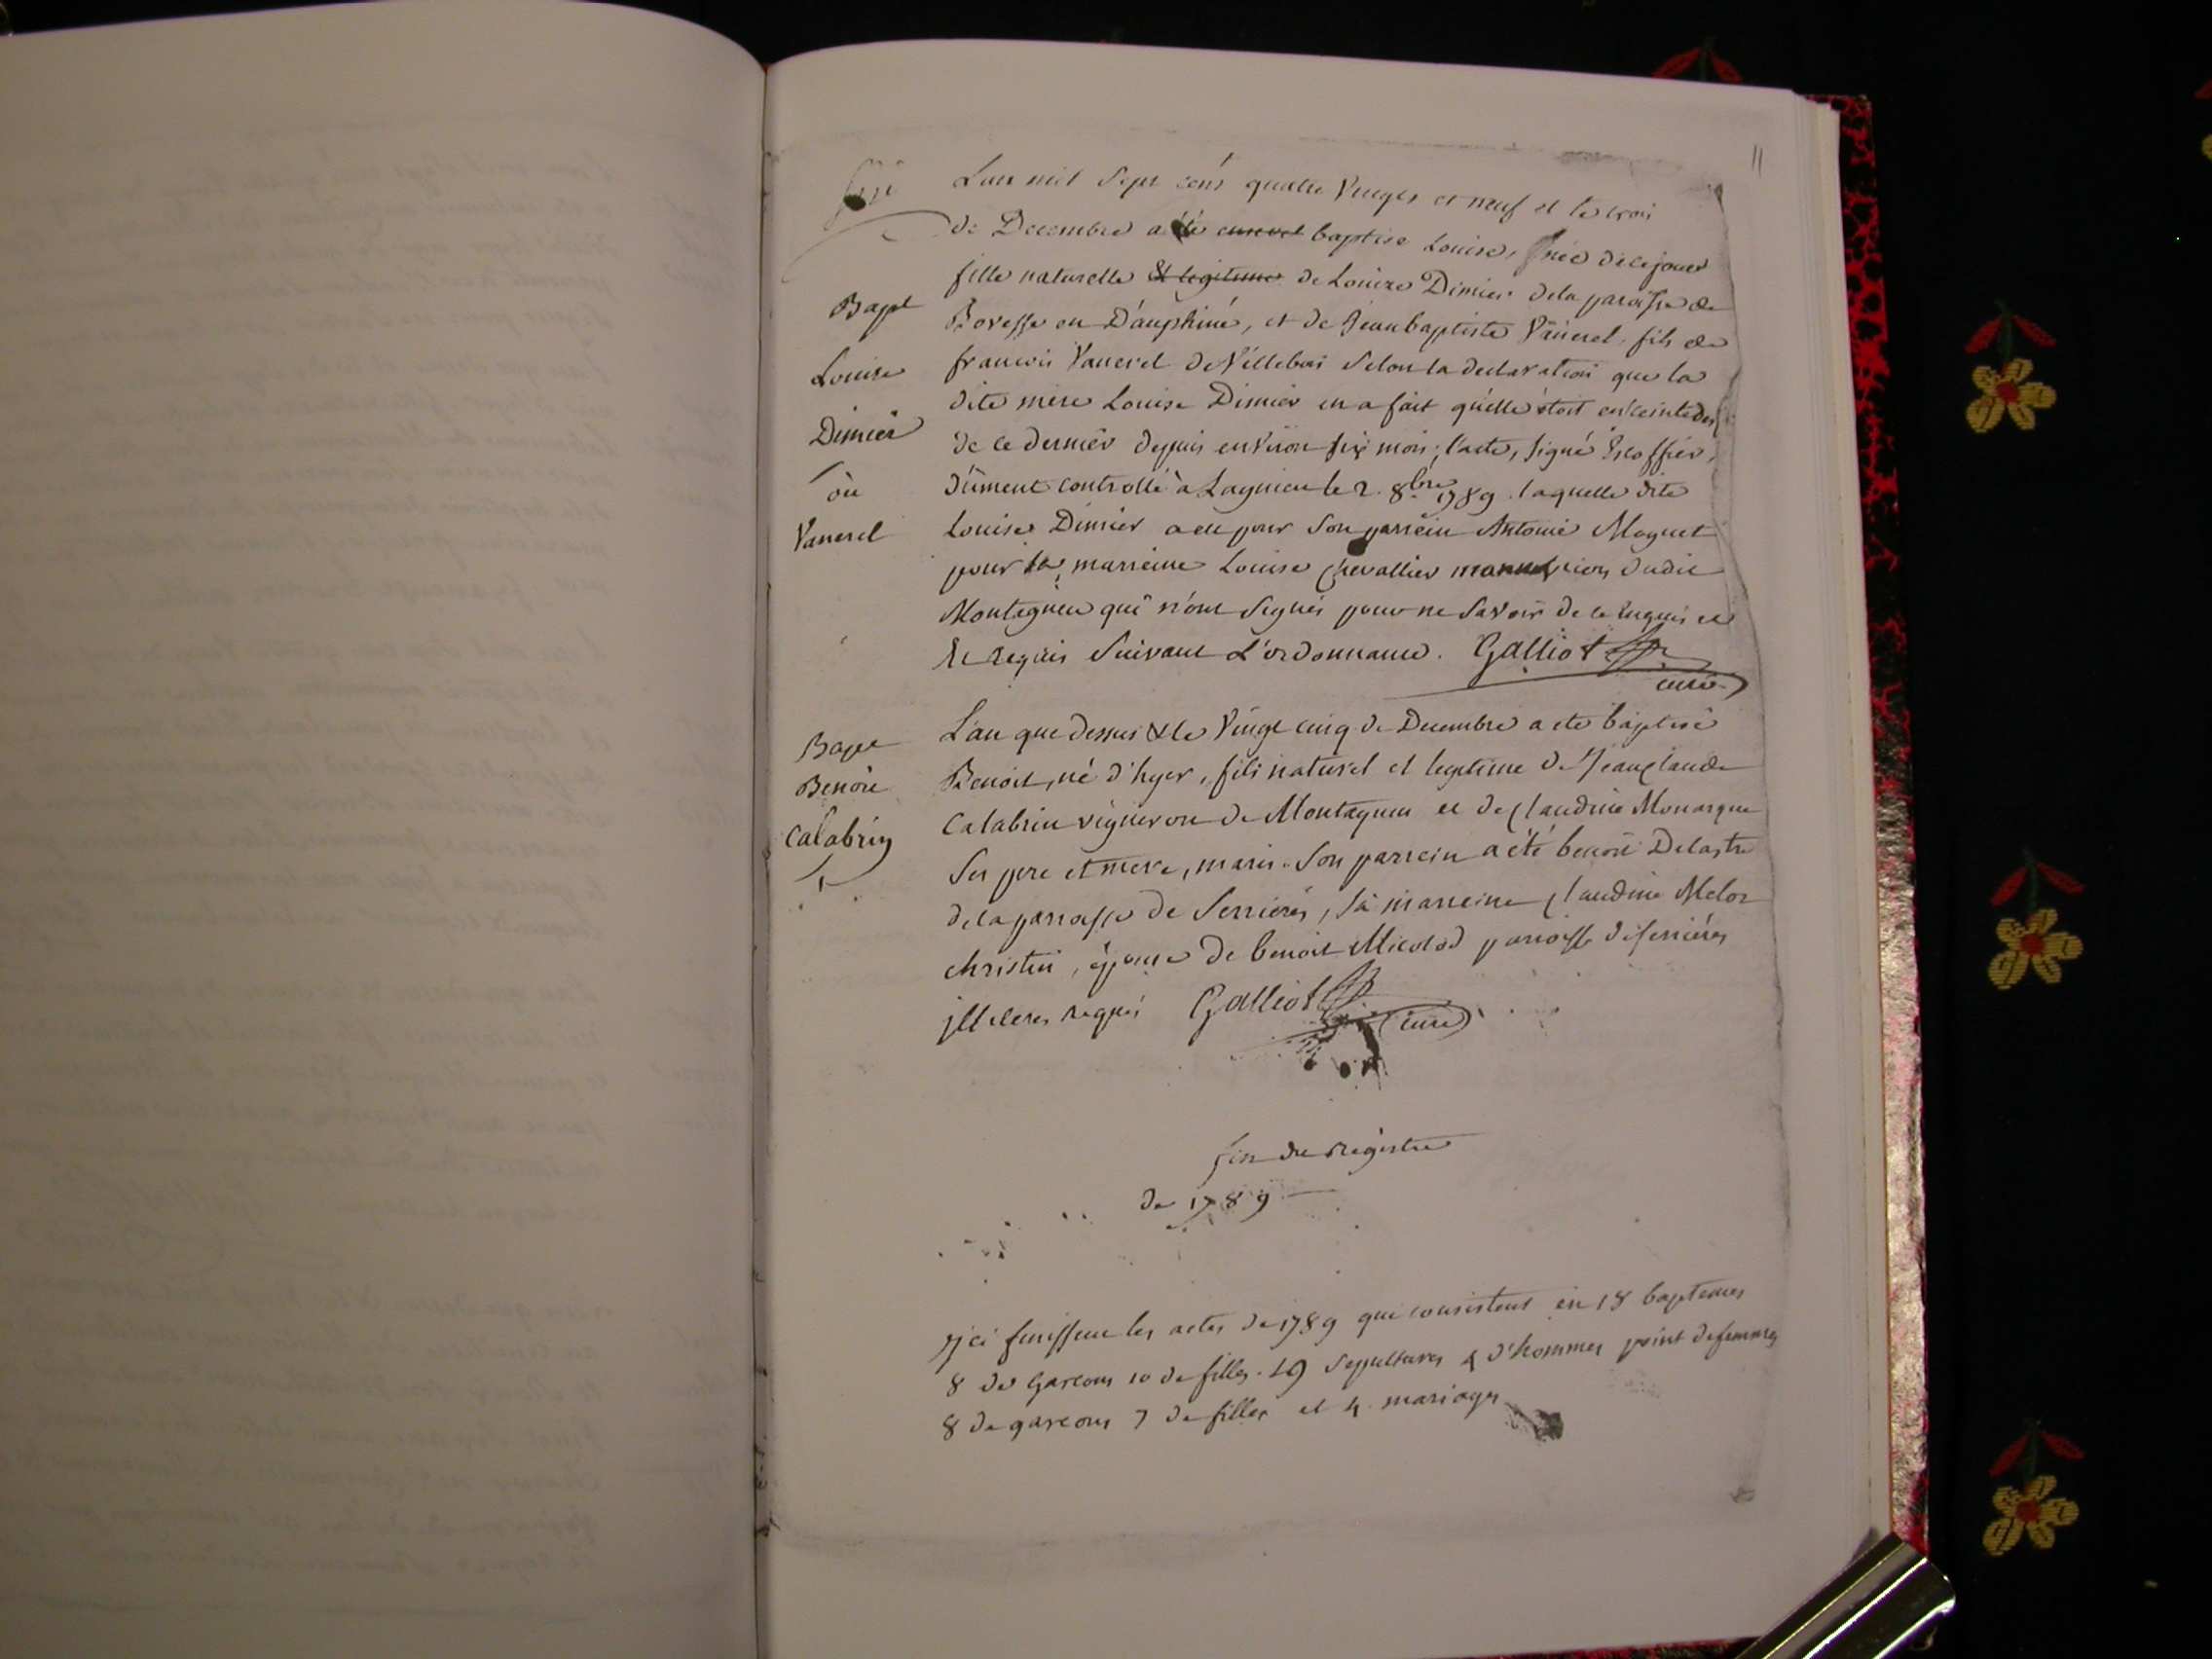 11
L'an mil sept cens quatre vingts et neuf et le trois
de Decembre a été baptisé Louise, née de ce jour
fille naturelle & legitime de Louize Dimier de la paroisse de
Bapt
Bovesse en Dauphiné, et de Jean baptiste Vanerel fils de
Louise
francois Vanerel de Villebois selon la declaration que la
dite mere Louise Dimier en a fait qu'elle étoit enceinte des
Dimier
de ce dernier depuis environ six mois, l'acte, signé Escoffier,
ou
dûment controllé à Lagnieu le 2. 8bre 1789. laquelle dite
Vanerel
Louise Dimier a eu pour son parrein Antoine Moguet
pour sa marreine Louise Chevallier dudit
Montagnieu qui n'ont signés pour ne savoir de ce enquis et
et requis suivant L'ordonnance. Galliot
curé
L'an que dessus & le vingt cinq de Decembre a eté baptisé
Bapt
Benoit, né d'hyer, fils naturel et legitime de Jean Claude
Benoit
Calabrin vigneron de Montagnieu et de Claudine Monarque
Calabrin
ses pere et mere, mariés. Son parrein a été benoit Delastre
de la parroisse de Serrieres, sa marreine Claudine Meloz
christin, épouse de benoit Micolod parroisse de serriéres
illiteres requis Galliot
curé
fin du Régistre
de 1789
ici finissent les actes de 1789 qui consistent en 18 baptemes
8 de Garcons 10 de filles. 19 sepultures 4 d'hommes point de femmes
8 de garcons 7 de filles et 4 mariages